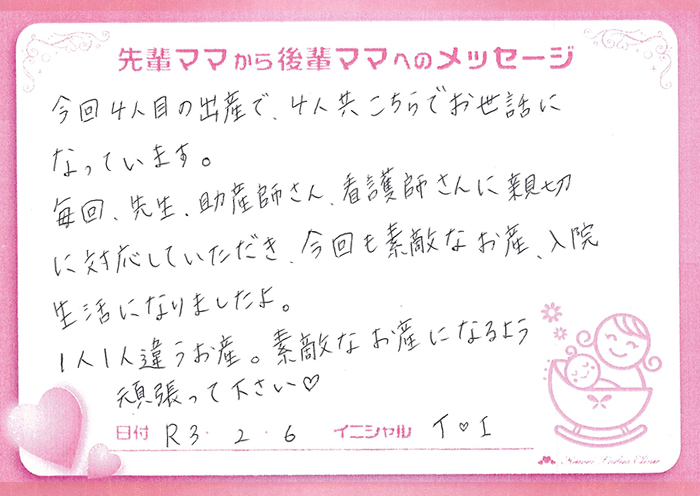 先輩ママから後輩ママへのメッセージ
今回4人目の出産で、4人共こちらでお世話に
なっています。
毎回、先生、助産師さん、看護師さんに親切
に対応していただき、今回も素敵なお産、入院
生活になりましたよ。
1人1人違うお産。素敵なお産になるよう
頑張って下さい♡
日付 R3・2・6 イニシャル T♡I